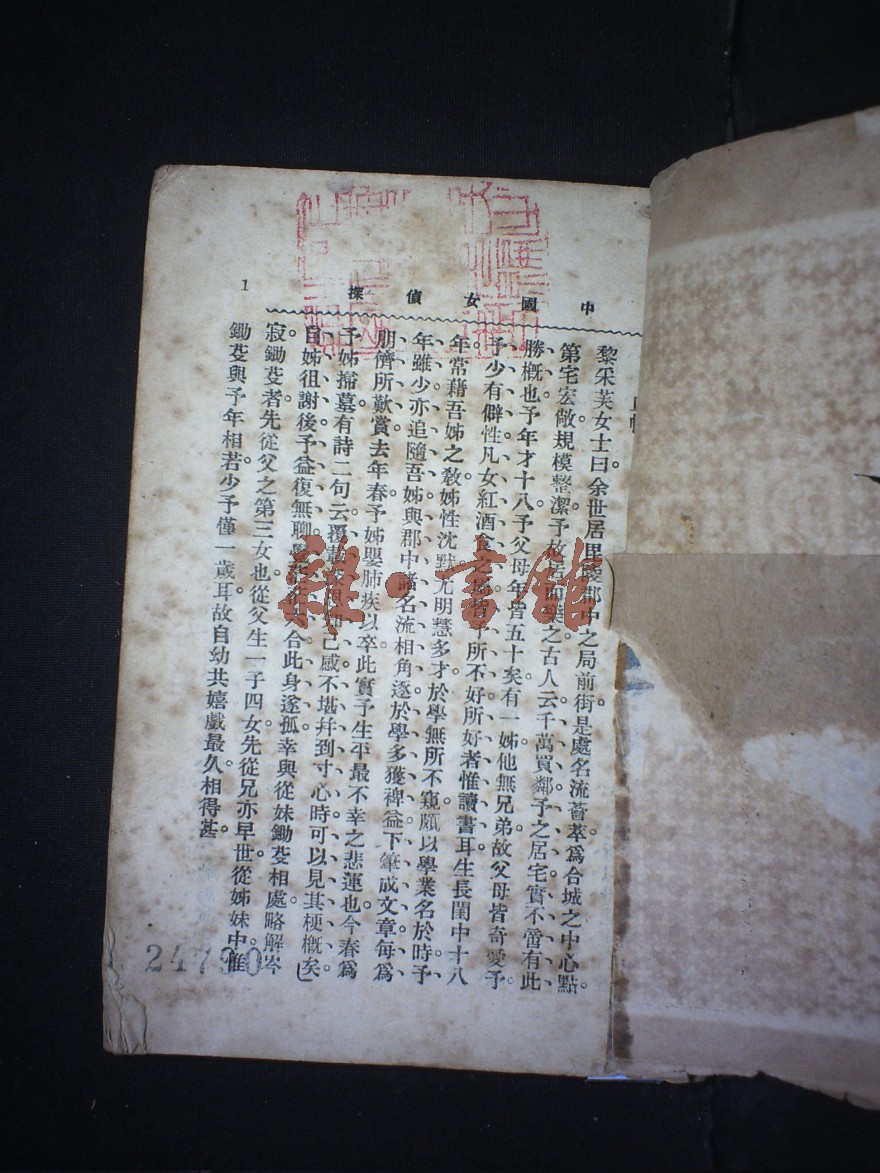 中國女偵探
1
黎采芙女士曰余世居毘陵郡中之局前街是處名流薈萃爲合城之中心點
第宅宏敞規模整潔予故居而樂之古人云千萬買鄰予之居宅實不啻有此
勝概也予年才十八予父母年皆五十矣有一姊他無兄弟故父母皆奇愛予
予少有僻性凡女紅酒食之 皆予所不好所好者惟讀書耳生長閨中十八
年常藉吾姊之敎姊性沈默尤明慧多才於學無所不窺頗以學業名於時予
年雖少亦追隨吾姊與郡中諸名流相角逐於學多獲裨益下筆成文章每爲
朋儕所歎賞去年春予姊嬰肺疾以卒此實予生平最不幸之悲運也今春爲
予姊掃墓有詩二句云覆載 知己感不堪幷到寸心時可以見其梗概矣
自姊徂謝後予益復無聊 合此身遂孤幸與從妹鋤芟相處略解岑
寂鋤芟者先從父之第三女也從父生一子四女先從兄亦早世從姊妹中惟
鋤芟與予年相若少予僅一歲耳故自幼共嬉戲最久相得甚
雜·書館